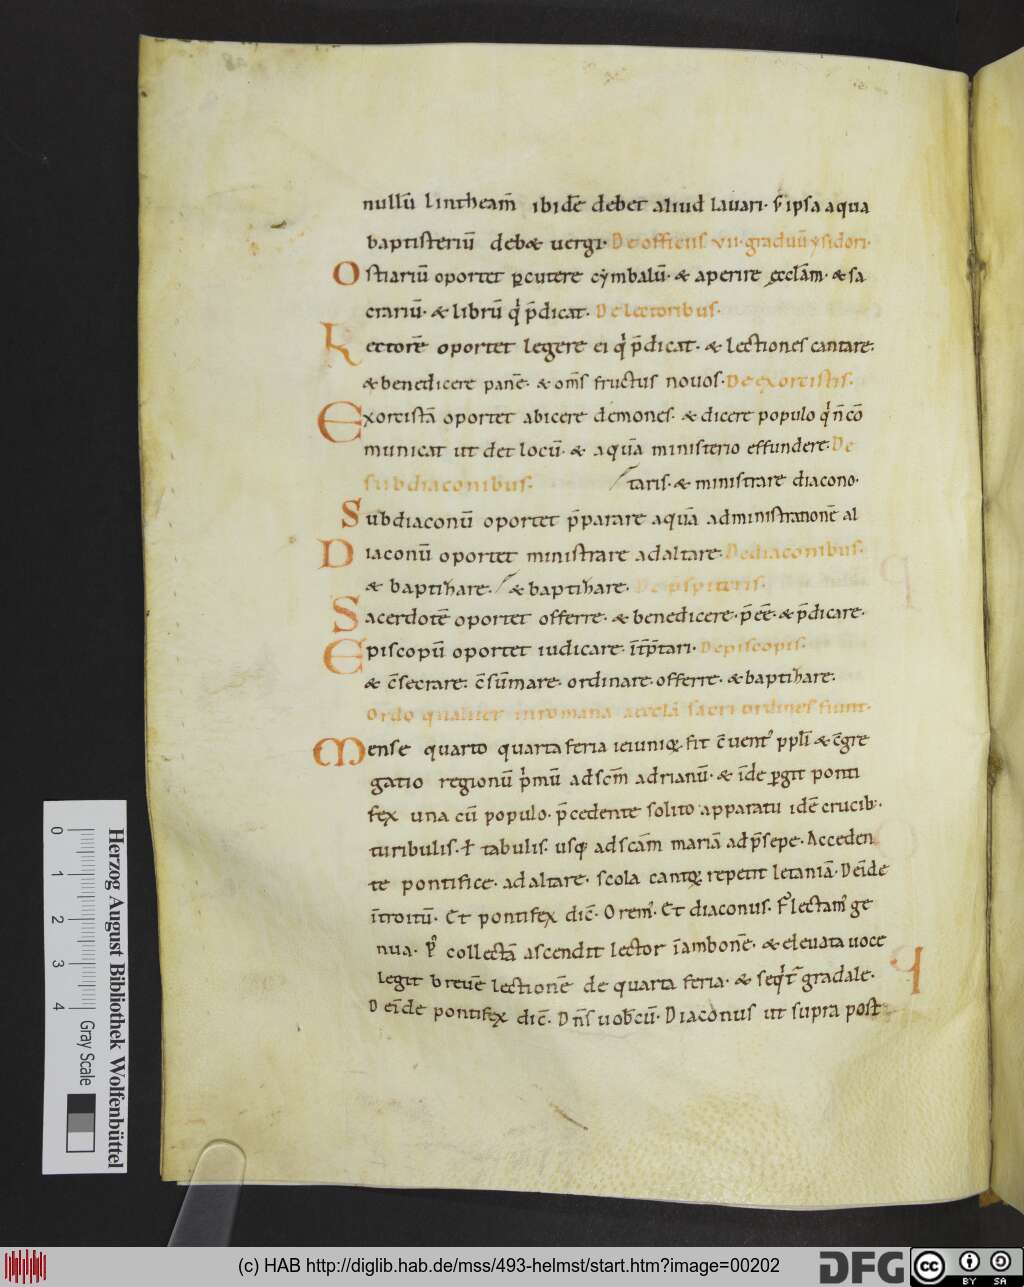 nullū lintheam̄ ibidē debet aliud lauari· s̄ ipsa aqua
baptisteriū deb& uergi· De officiis vii· graduū ysidori·
Ostiariū oportet ꝑcutere cȳmbalū· & aperire ęccl̄am· & sa
crariū· & librū q̇ p̄dicat· De lectoribus·
Lectorē oportet legere ei q̇ p̄dicat· & lectiones cantare·
& benedicere panē· & om̄s fructus nouos· De exorcistis·
Exorcistā oportet abicere demones· & dicere populo q̇ n̄ cō
municat ut det locū· & aquā ministerio effundere· De
subdiaconibus· taris· & ministrare diacono·
Subdiaconū oportet p̄parare aquā administrationē al
Diaconū oportet ministrare ad altare· De diaconibus·
& baptizare· & baptizare·
Sacerdotē oportet offerre· & benedicere· p̄eē· & p̄dicare·
Episcopū oportet iudicare· īt̄p̄tari· De episcopis·
& c̄secrare· c̄sūmare· ordinare· offerre· & baptizare·
Ordo qualiter in romana aeccl̄a sacri ordines fiunt·
Mense quarto quarta feria ieiuniоꝝ fit c̄uent᷒ ppl̄i & c̄gre
gatio regionū p̄mū ad sc̄m adrianū· & īde ꝑgit ponti
fex una cū populo· p̄cedente solito apparatu idē crucib;·
turibulis· ł tabulis· usq; ad sc̄am mariā ad p̄sepe· Acceden
te pontifice· ad altare· scola cantoꝝ repetit letaniā· Deīde
ītroitū· Et pontifex dic̄· Orem᷒· Et diaconus· Flectam᷒ ge
nua· P᷒ collectā ascendit lector ī ambonē· & eleuata uoce
legit breuē lectionē de quarta feria· & seq̇t᷒ gradale·
Deīde pontifex dic̄· Dn̄s uob̄cū· Diaconus ut supra post
0 1 2 3 4
Gray Scale
Herzog August Bibliothek Wolfenbüttel
(c) HAB http://diglib.hab.de/mss/493-helmst/start.htm?image=00202
DFG
cc
BY SA